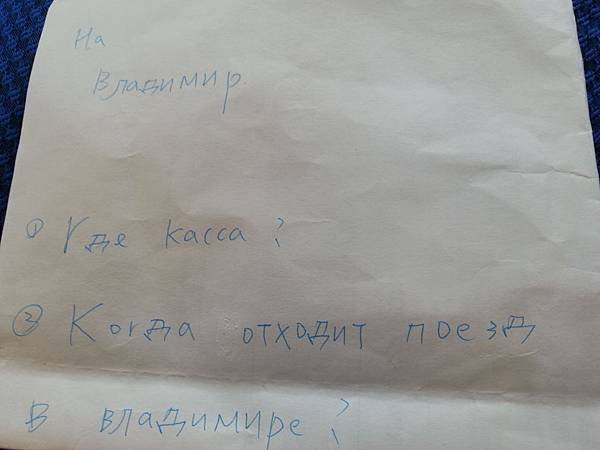 На
Владимир
① Где касса?
② Когда отходит поезд
В владимире?